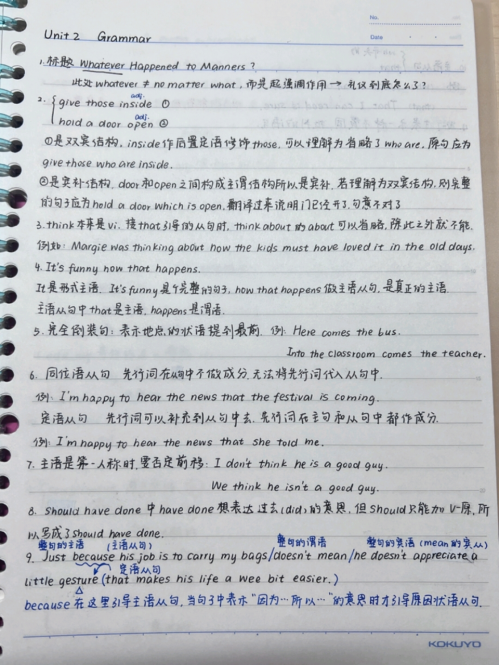 No.
Date
Unit 2 Grammar
1. 标题 Whatever Happened to Manners?
此处 whatever ≠ no matter what, 而是起强调作用 → 礼仪到底怎么了?
adj.
2. { give those inside ①
adj.
hold a door open ②
①是双宾结构, inside作后置定语修饰those, 可以理解为省略了who are, 原句应为
give those who are inside.
②是宾补结构, door和open之间构成主谓结构所以是宾补, 若理解为双宾结构, 则完整
的句子应为hold a door which is open, 翻译过来说明门已经开了, 句意不对了
3. think本来是vi, 接that引导的从句时, think about的about可以省略, 除此之外就不能.
例如: Margie was thinking about how the kids must have loved it in the old days.
4. It's funny how that happens.
It是形式主语, It's funny是个完整的句子, how that happens做主语从句, 是真正的主语
主语从句中that是主语, happens是谓语.
5. 完全倒装句: 表示地点的状语提到最前. 例: Here comes the bus.
Into the classroom comes the teacher.
6. 同位语从句 先行词在从句中不做成分, 无法将先行词代入从句中.
例: I'm happy to hear the news that the festival is coming.
定语从句 先行词可以补充到从句中去, 先行词在主句和从句中都作成分.
例: I'm happy to hear the news that she told me.
7. 主语是第一人称时, 要否定前移: I don't think he is a good guy.
We think he isn't a good guy.
8. should have done 中 have done 想表达过去(did)的意思, 但should只能加V-原, 所
以写成了should have done.
整句的主语 (主语从句) 整句的谓语 整句的宾语 (mean的宾从)
9. Just because his job is to carry my bags/doesn't mean/he doesn't appreciate a
定语从句
little gesture (that makes his life a wee bit easier.)
because 在这里引导主语从句, 当句子中表示"因为…所以…"的意思时才引导原因状语从句.
KOKUYO